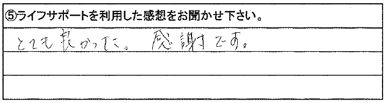 ⑤ライフサポートを利用した感想をお聞かせ下さい。
とても良かった。感謝です。